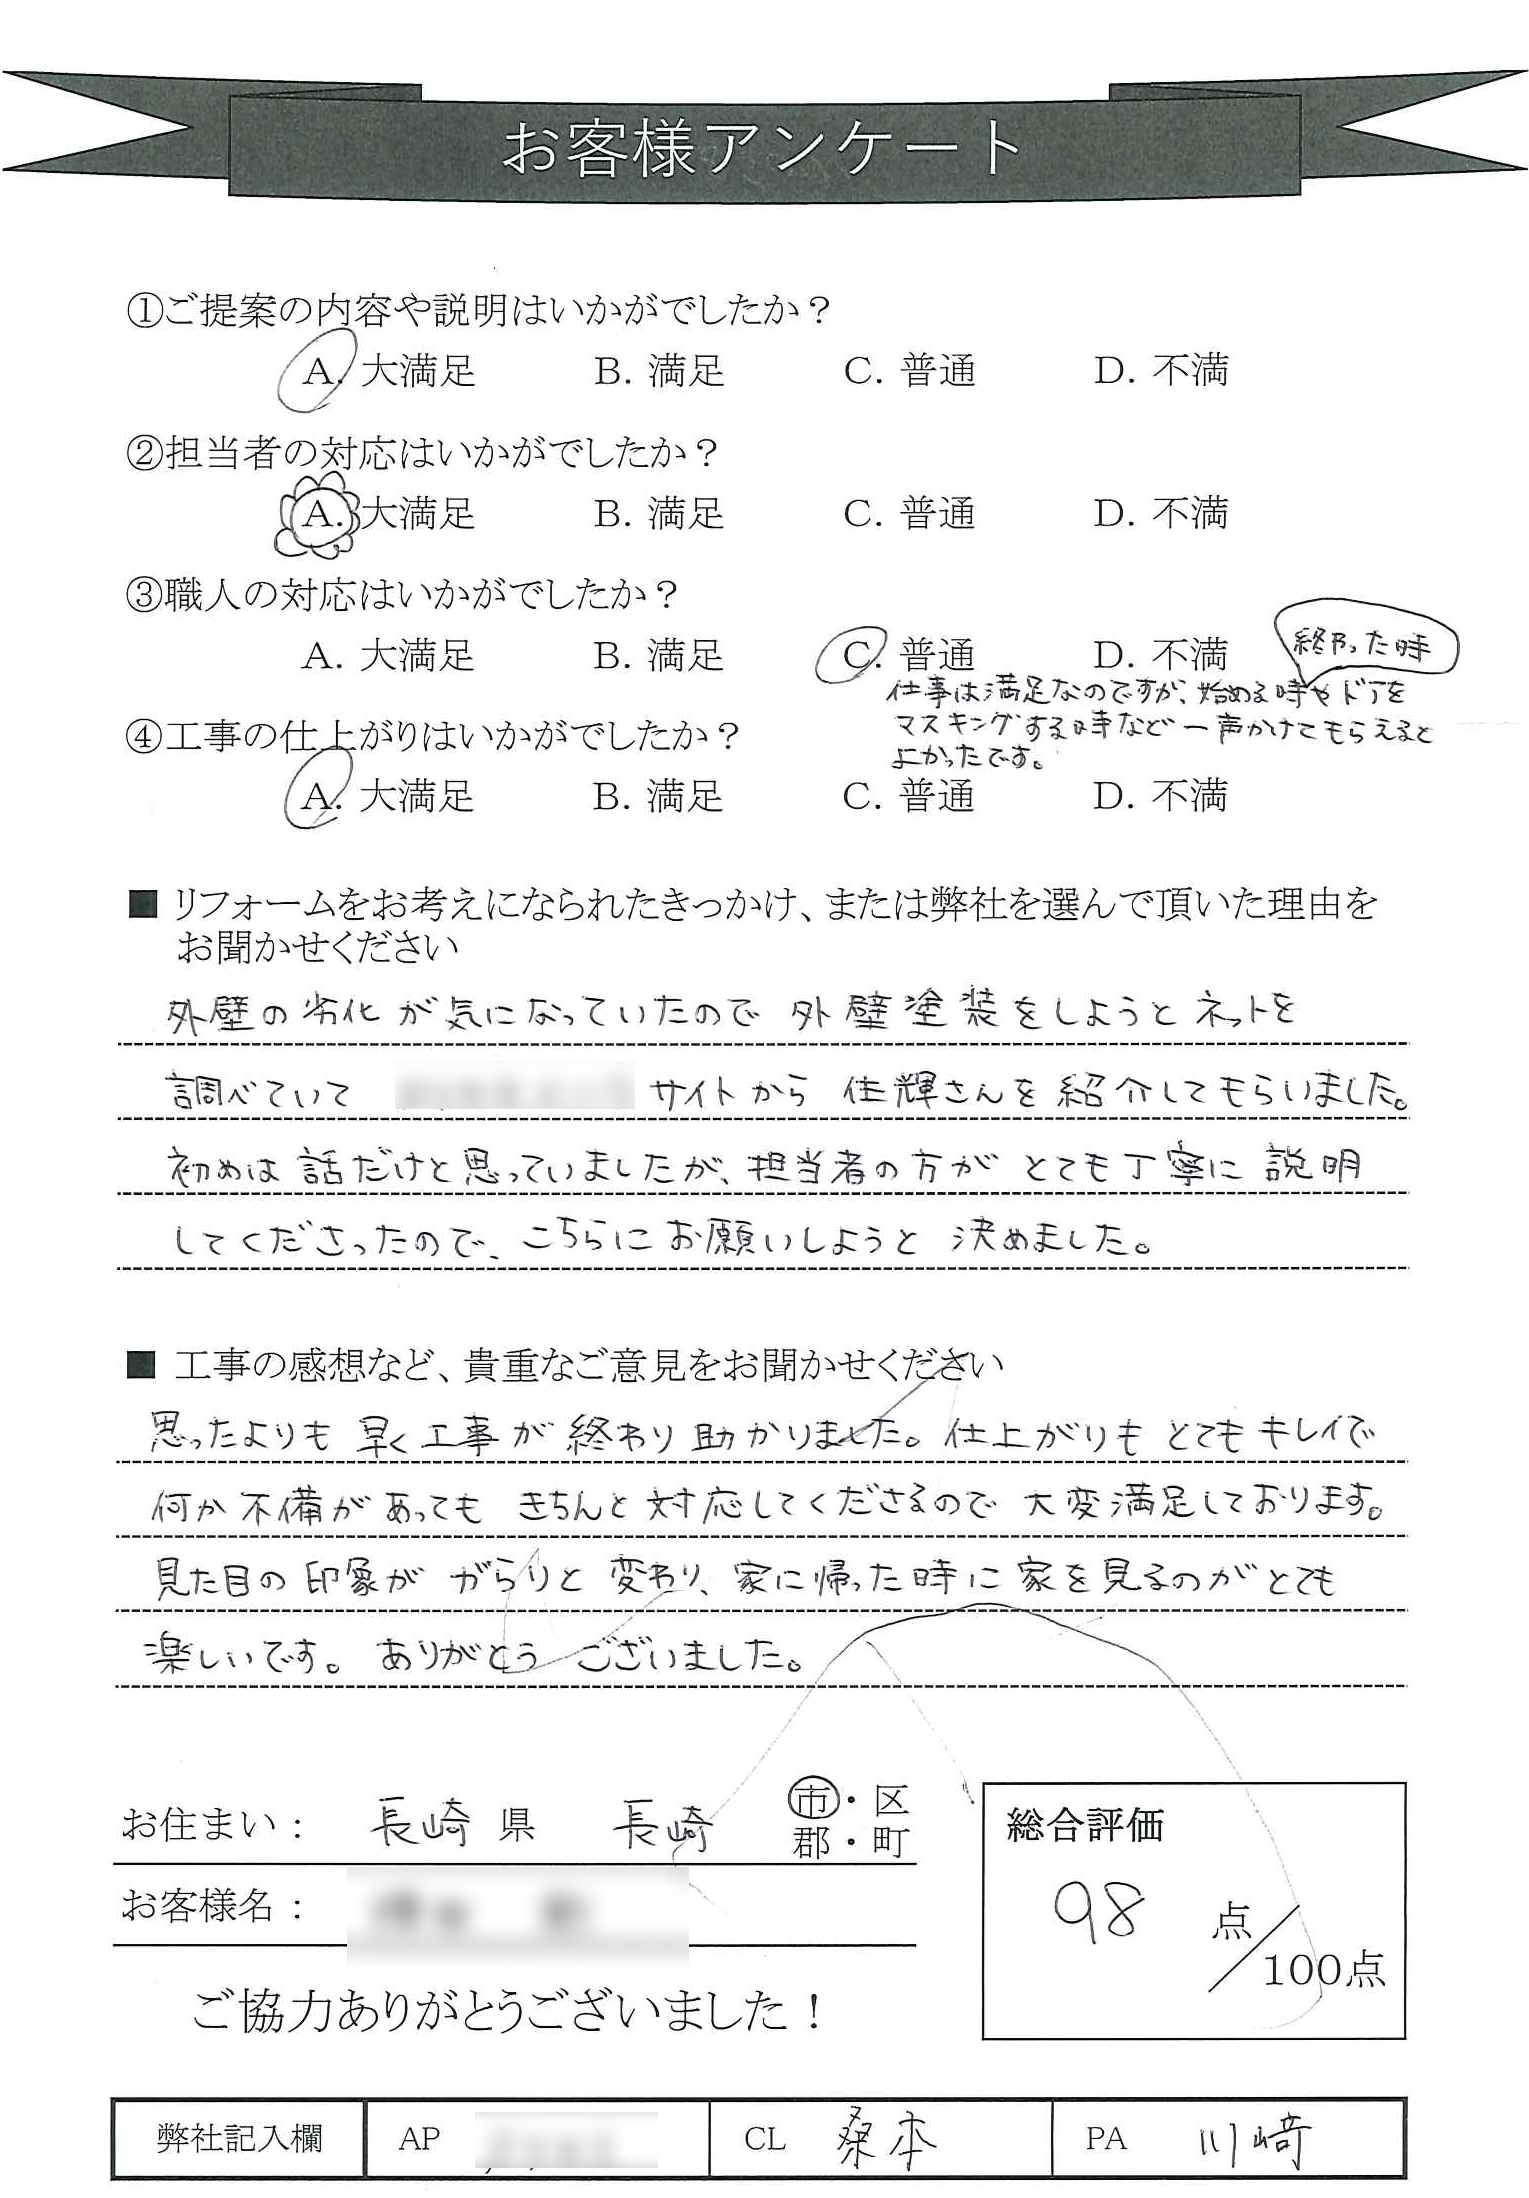 お客様アンケート
①ご提案の内容や説明はいかがでしたか？
A. 大満足 B. 満足 C. 普通 D. 不満
②担当者の対応はいかがでしたか？
A. 大満足 B. 満足 C. 普通 D. 不満
③職人の対応はいかがでしたか？
A. 大満足 B. 満足 C. 普通 D. 不満
終わった時
仕事は満足なのですが、始める時やドアを
マスキングする時など一声かけてもらえると
よかったです。
④工事の仕上がりはいかがでしたか？
A. 大満足 B. 満足 C. 普通 D. 不満
■ リフォームをお考えになられたきっかけ、または弊社を選んで頂いた理由を
お聞かせください
外壁の劣化が気になっていたので 外壁塗装をしようとネットを
調べていて サイトから 佳輝さんを紹介してもらいました。
初めは話だけと思っていましたが、担当者の方が とても丁寧に説明
してくださったので、こちらにお願いしようと 決めました。
■ 工事の感想など、貴重なご意見をお聞かせください
思ったよりも 早く工事が終わり助かりました。仕上がりも とてもキレイで
何か不備があっても きちんと対応してくださるので 大変満足しております。
見た目の印象が がらりと変わり、家に帰った時に家を見るのがとても
楽しいです。ありがとう ございました。
お住まい： 長崎 県 長崎 市・区
郡・町
お客様名：
総合評価
98 点／100点
ご協力ありがとうございました！
弊社記入欄 AP CL 桑本 PA 川﨑